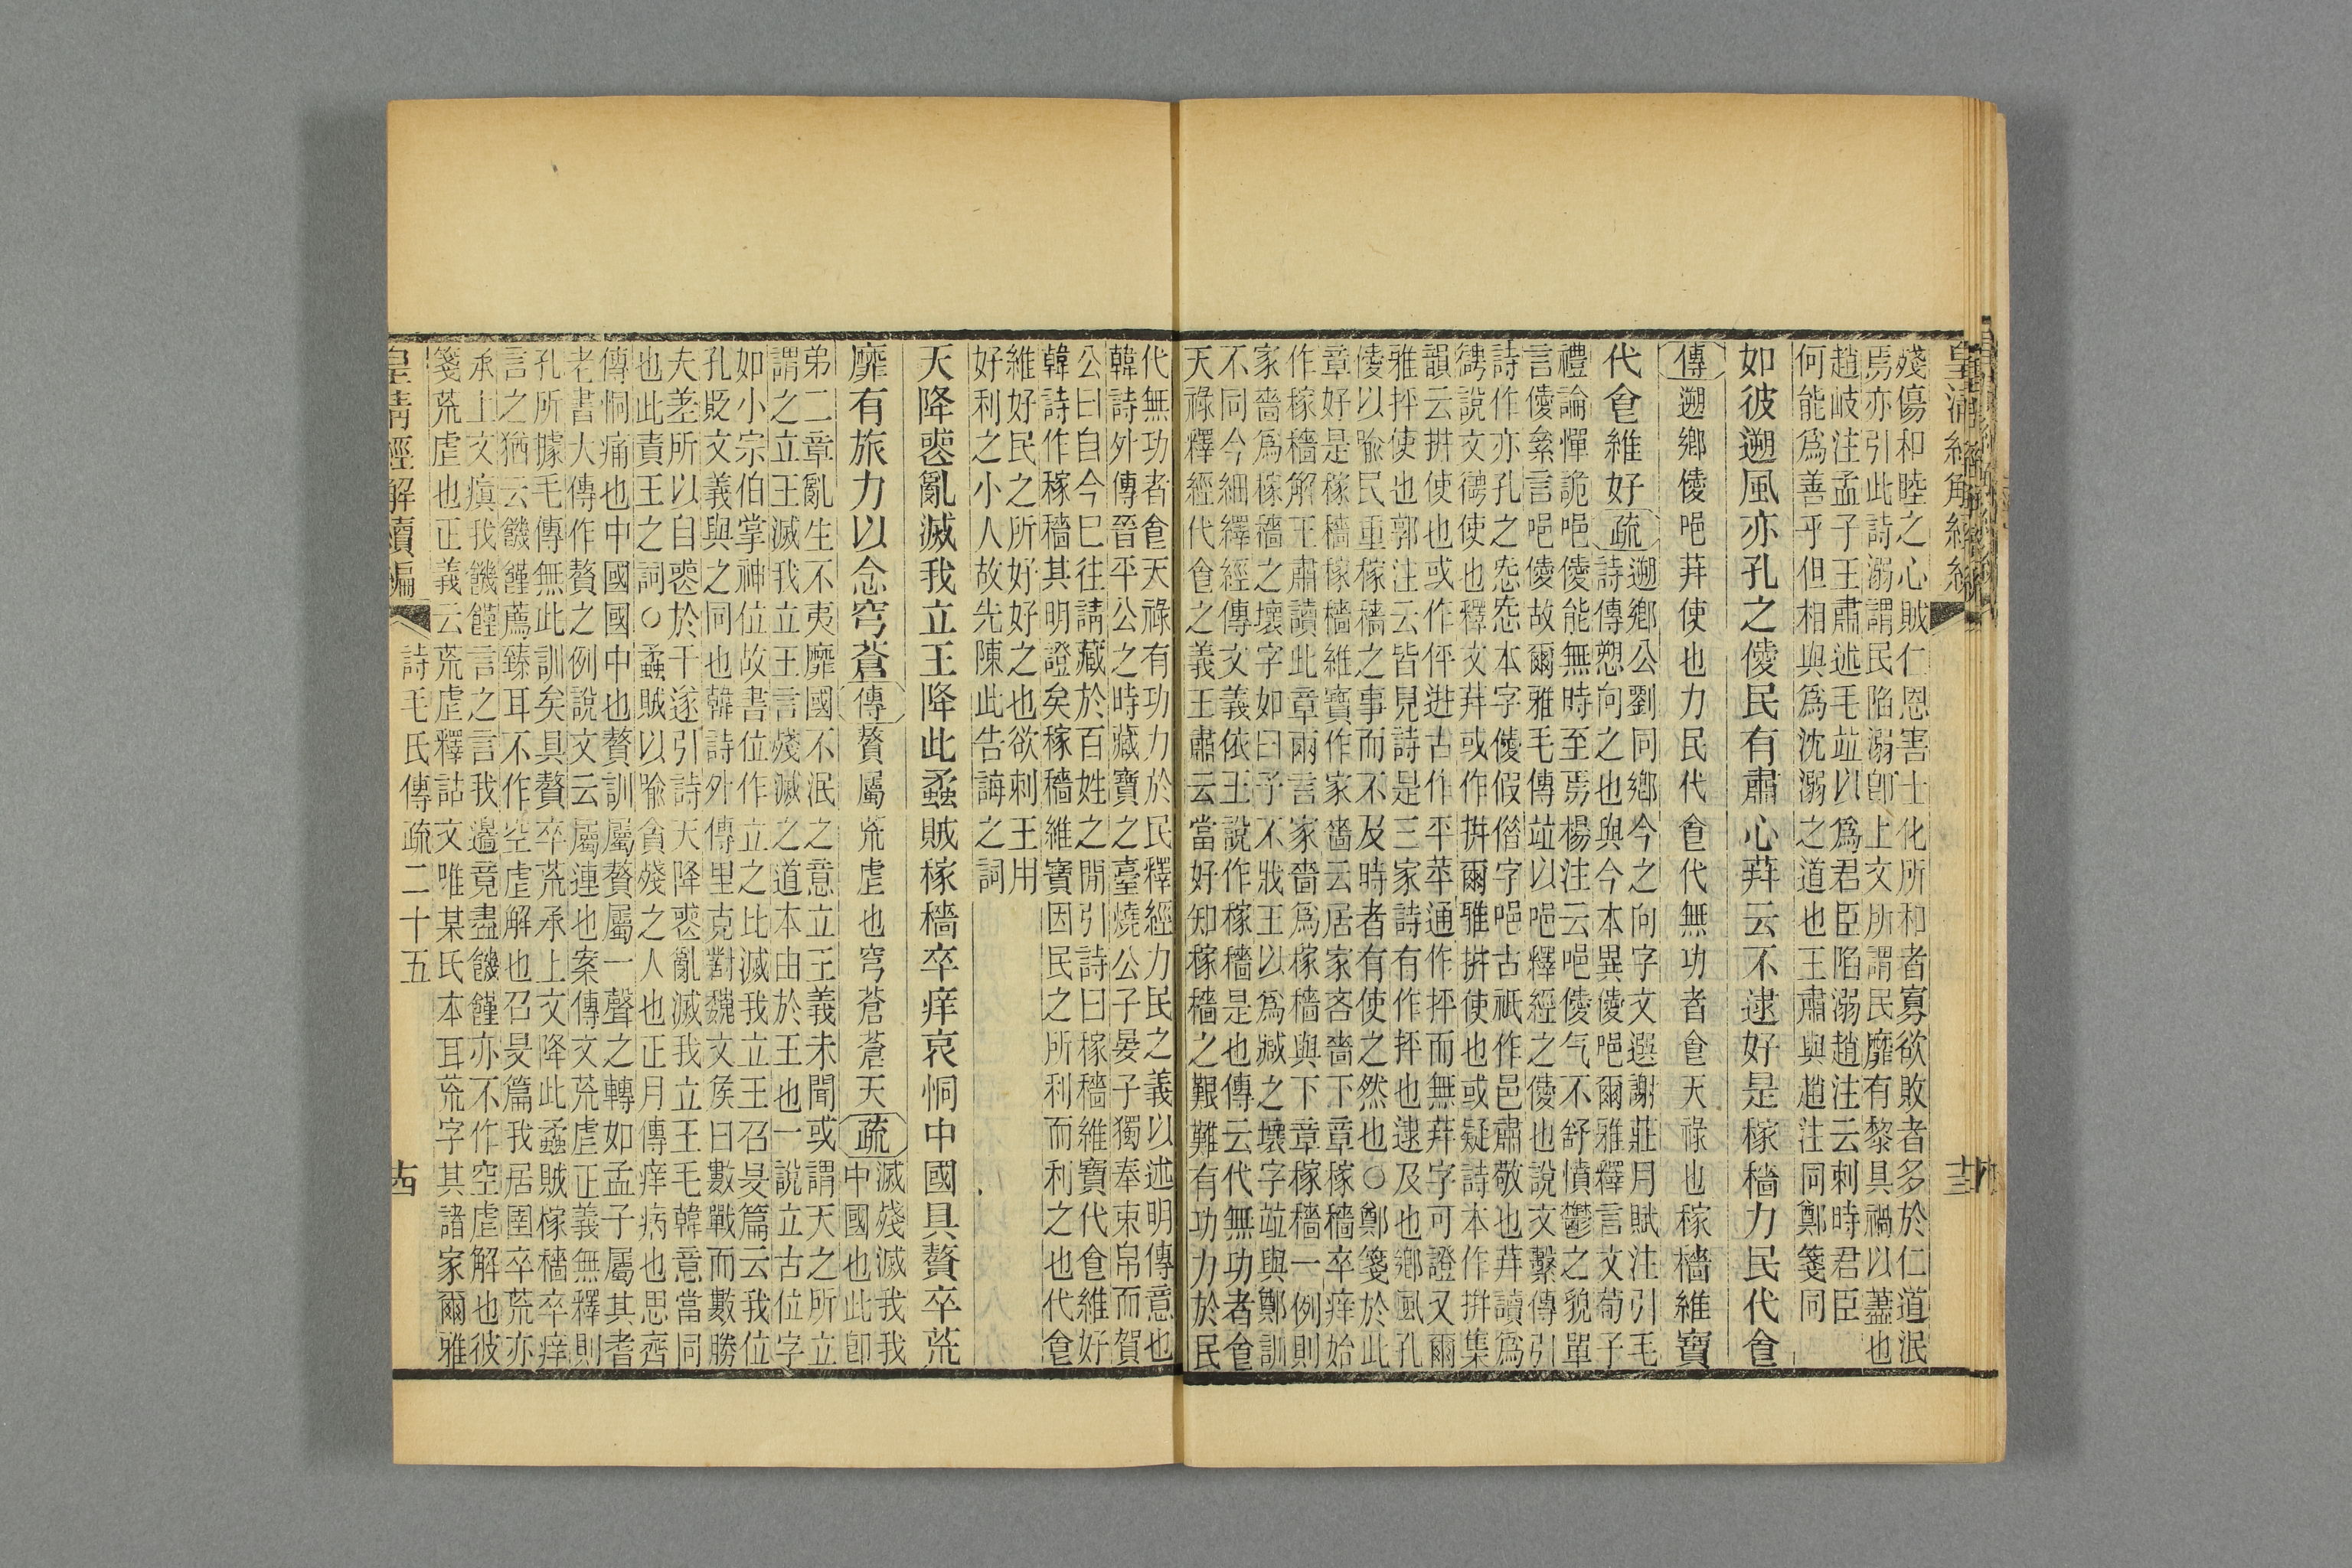 殘傷和睦之心賊仁恩害士化所和者寡欲敗者多於仁道泯
焉亦引此詩溺謂民陷溺卽上文所謂民靡有黎具禍以藎也
趙岐注孟子王肅述毛竝以爲君臣陷溺趙注云刺時君臣
何能爲善乎但相與爲沈溺之道也王肅與趙注同鄭箋同
如彼遡風亦孔之僾民有肅心荓云不逮好是稼穡力民代㑒
傳遡鄉僾唈荓使也力民代㑒代無功者㑒天祿也稼穡維寶
代㑒維好疏
遡鄉公劉同鄉今之向字文選謝莊月賦注引毛
詩傳愬向之也與今本異僾唈爾雅釋言文荀子
禮論憚詭唈僾能無時至焉楊注云唈僾气不舒憤鬱之貌單
言僾絫言唈僾故爾雅毛傳竝以唈釋經之僾也說文繫傳引
詩作亦孔之㤅㤅本字僾假偕字唈古祇作邑肅敬也荓讀爲
䛣說文德使也釋文荓或作拼爾雅拼使也或疑詩本作拼集
韻云拼使也或作伻迸古作平苹通作抨而無荓字可證又爾
雅抨使也郭注云皆見詩是三家詩有作抨也逮及也鄉風孔
僾以喩民重稼穡之事而不及時者有使之然也○鄭箋於此
章好是稼穡稼穡維寶作家嗇云居家吝嗇下章稼穡卒痒始
作稼穡解王肅讀此章兩言家嗇爲稼穡與下章稼穡一例則
家嗇爲稼穡之壞字如曰予不戕王以爲臧之壞字竝與鄭訓
不同今細繹經傳文義依王說作稼穡是也傳云代無功者㑒
天祿釋經代㑒之義王肅云當好知稼穡之艱難有功力於民
代無功者㑒天祿有功力於民釋經力民之義以述明傳意也
韓詩外傳晉平公之時藏寶之臺燒公子晏子獨奉束帛而賀
公曰自今巳往請藏於百姓之閒引詩曰稼穡維寶代㑒維好
韓詩作稼穡其明證矣稼穡維寶因民之所利而利之也代㑒
維好民之所好好之也欲刺王用
好利之小人故先陳此告誨之詞
天降喪亂滅我立王降此蟊賊稼穡卒痒哀恫中國具贅卒荒
靡有旅力以念穹蒼傳贅屬荒虛也穹蒼蒼天疏
滅殘滅我我
中國也此卽
弟二章亂生不夷靡國不泯之意立王義未聞或謂天之所立
謂之立王滅我立王言殘滅之道本由於王也一說立古位字
如小宗伯掌神位故書位作立之比滅我立王召旻篇云我位
孔貶文義與之同也韓詩外傳里克對魏文侯曰數戰而數勝
夫差所以自喪於干遂引詩天降喪亂滅我立王毛韓意當同
也此責王之詞○蟊賊以喩貪殘之人也正月傳痒病也思齊
傳恫痛也中國國中也贅訓屬贅屬一聲之轉如孟子屬其耆
老書大傳作贅之例說文云屬連也案傳文荒虛正義無釋則
孔所據毛傳無此訓矣具贅卒荒承上文降此蟊賊稼穡卒痒
言之猶云饑饉薦臻耳不作空虛解也召旻篇我居圉卒荒亦
承上文瘨我饑饉言之言我邉竟盡饑饉亦不作空虛解也彼
箋荒虛也正義云荒虛釋詁文唯某氏本耳荒字其諸家爾雅
皇清經解續編
詩毛氏傳疏二十五